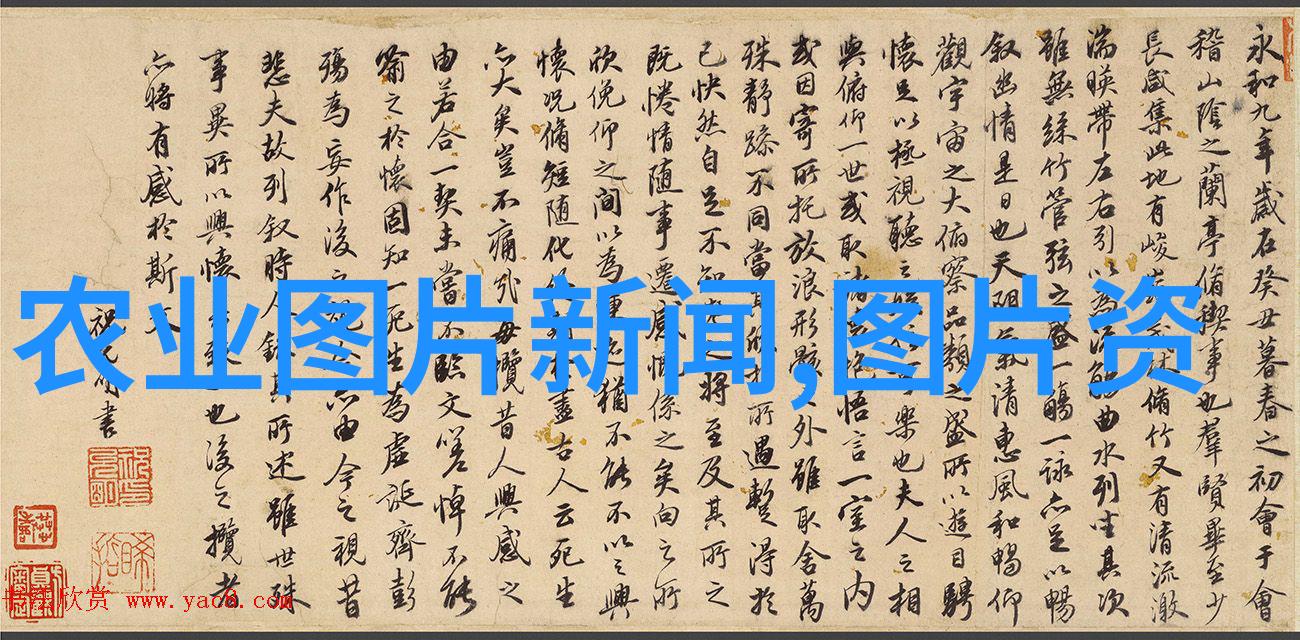 永和九年歲在癸丑暮春之初會于會
稽山陰之蘭亭脩稧事也羣賢畢至少
長咸集此地有峻領茂林脩竹又有清流激
湍暎帶左右引以為流觴曲水列坐其次
雖無絲竹管弦之盛一觴一詠亦足以暢
叙幽情是日也天朗氣清惠風和暢仰
觀宇宙之大俯察品類之盛所以遊目騁
懷足以極視聽之娛信可樂也夫人之相
與俯仰一世或取諸懷抱悟言一室之內
或因寄所托放浪形骸之外雖取舍萬
殊静躁不同當其欣於所遇暫得於
己快然自足不知老之將至及其所之
既惓情隨事遷感慨係之矣向之所
欣俛仰之間以為陳迹猶不能不以之興
懷況脩短隨化終期於盡古人云死生
亦大矣豈不痛哉每攬昔人興感之
由若合一契未嘗不臨文嗟悼不能
喻之於懷固知一死生為虛誕齊彭
殤為妄作後之視今亦由今之視昔
悲夫故列叙時人錄其所述雖世殊
事異所以興懷其致一也後之攬者
亦將有感於斯文
祝允明書
农业图片新闻,图片资
书法欣赏 www.yac8.com